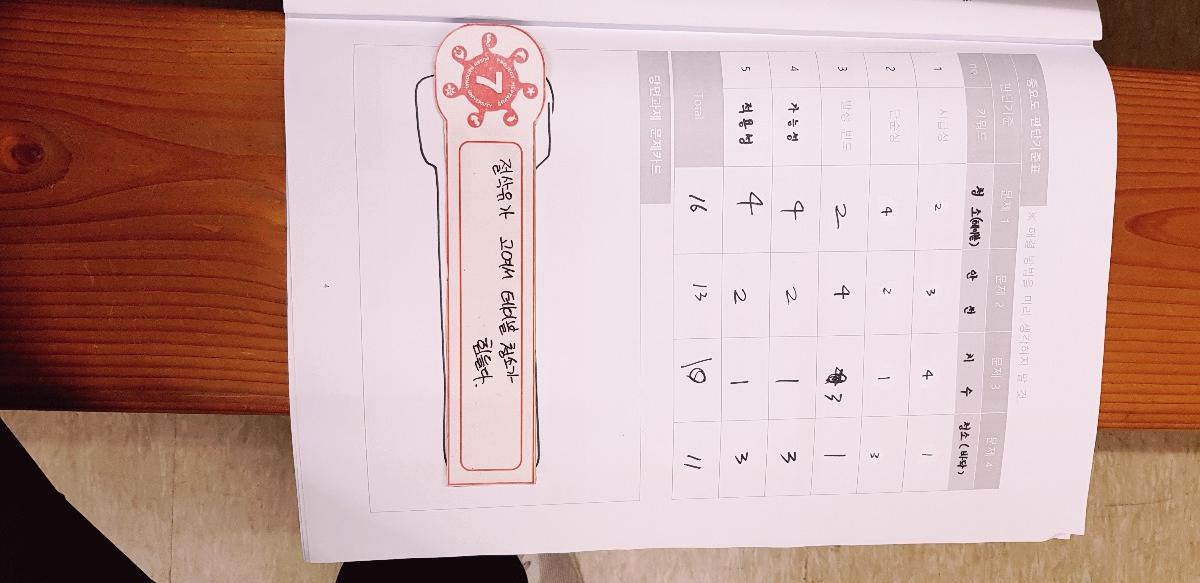 중요도 판단기준표
※ 해결 방법을 미리 생각하지 말 것
판단기준 문제 1 문제 2 문제 3 문제 4
no 키워드 청소(테이블) 안전 치수 청소(바닥)
1 시급성 2 3 4 1
2 단순성 4 2 1 3
3 발생 빈도 2 4 3 1
4 가능성 4 2 1 3
5 적용성 4 2 1 3
Total 16 13 10 11
당면과제 문제카드
7
절삭유가 고여서 테이블 청소가
힘들다.
4